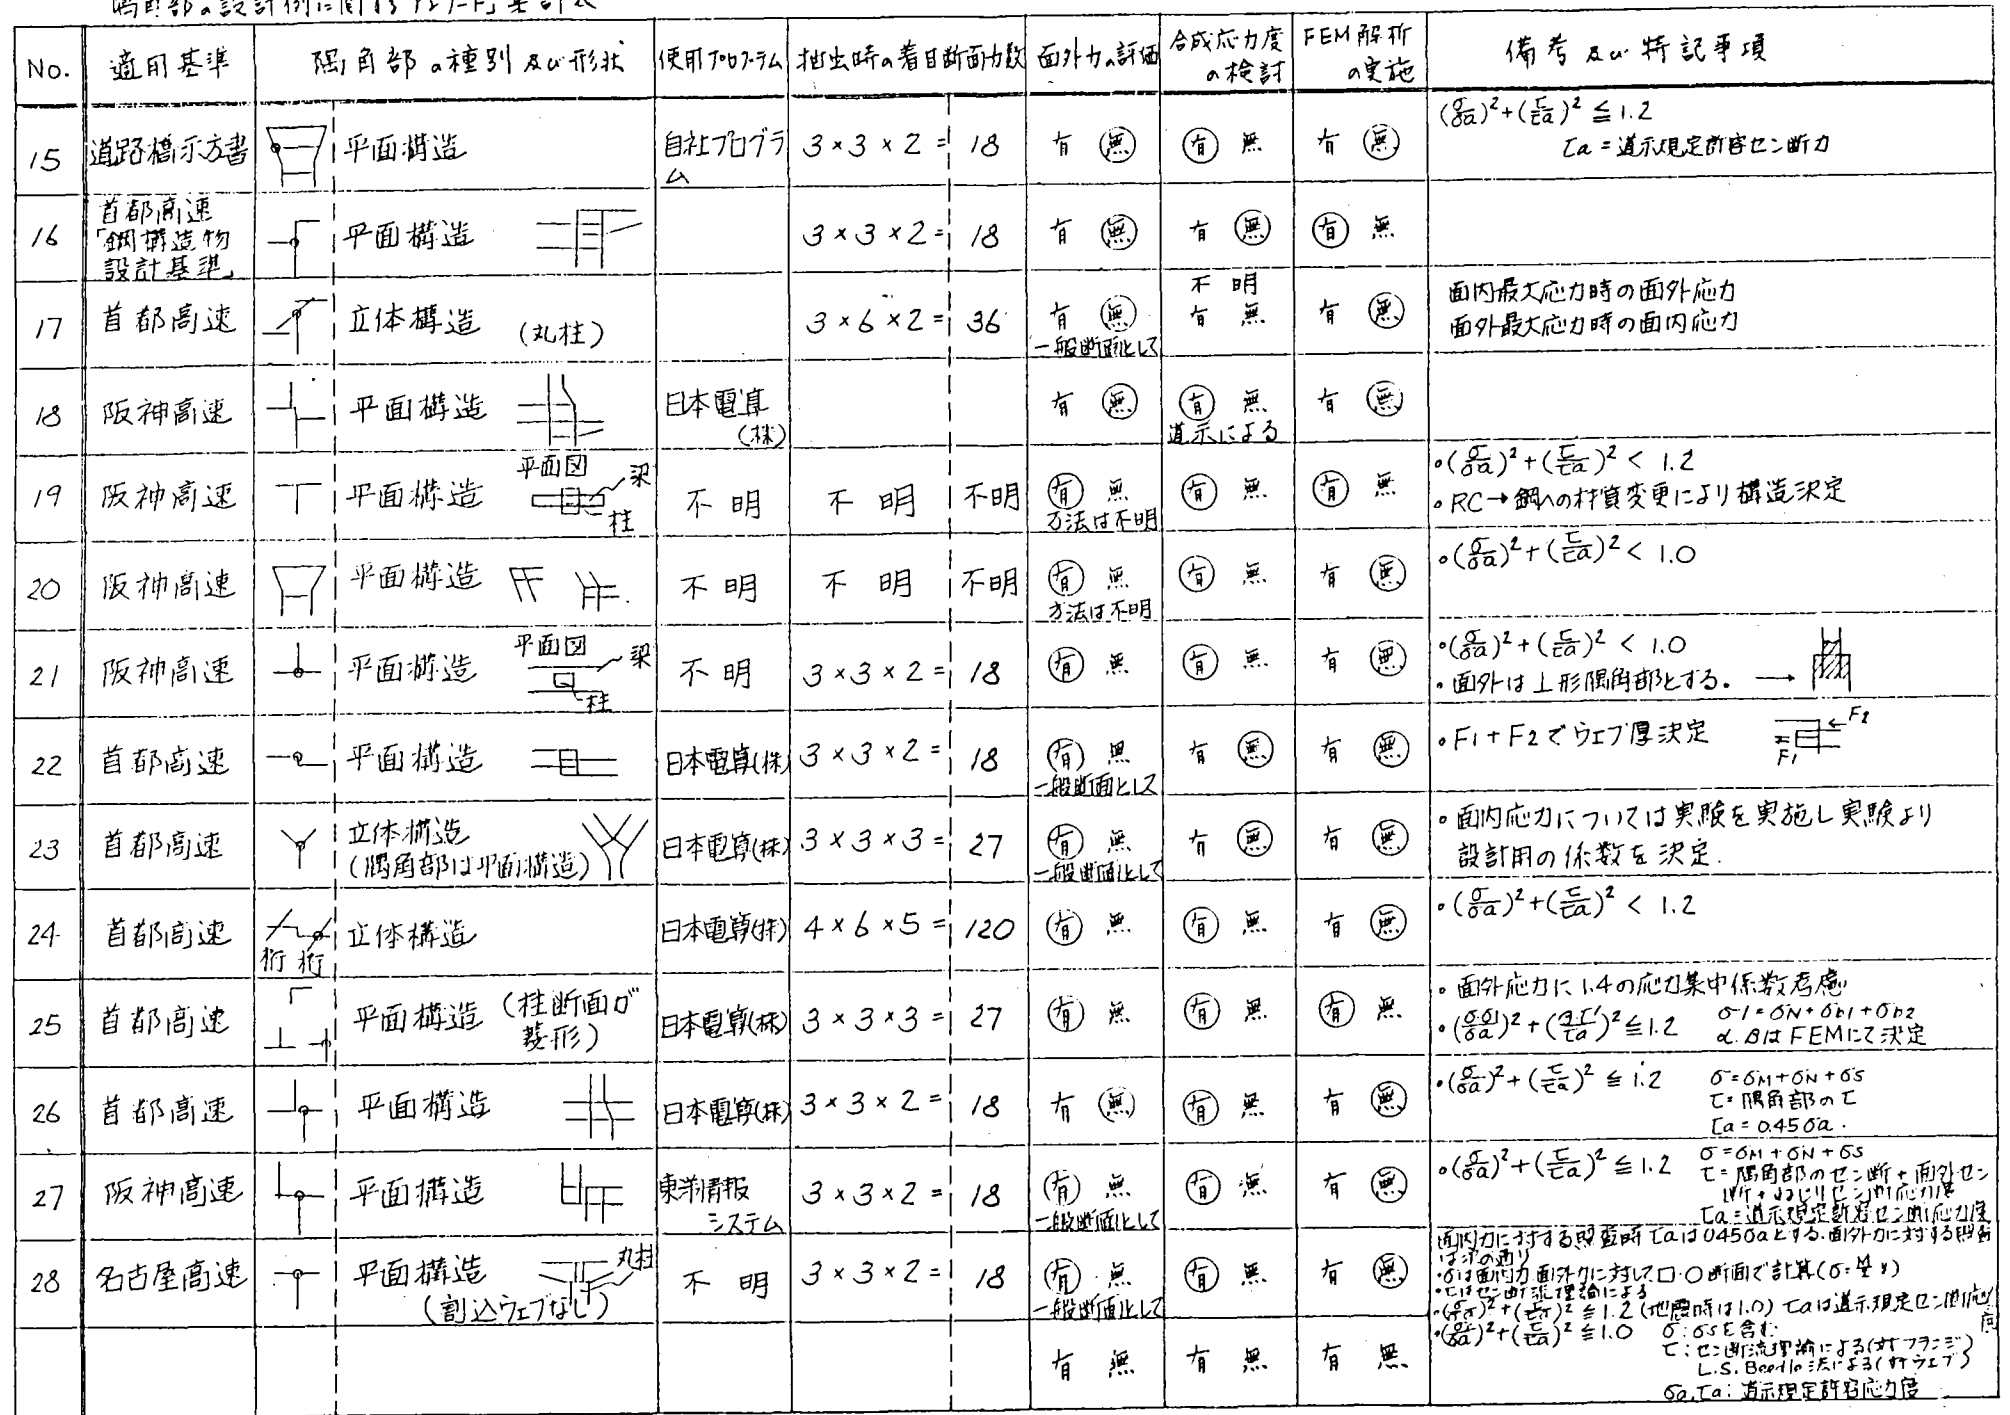 隅角部の設計例に関するアンケート」集計表
No. 適用基準 隅角部の種別及び形状 使用プログラム 抽出時の着目断面力数 面外力の評価 合成応力度の検討 FEM解析の実施 備考及び特記事項
15 道路橋示方書 平面構造 自社プログラム 3×3×2= 18 有 無 有 無 有 無 (σ/σa)²+(τ/τa)²≦1.2
τa=道示規定許容セン断力
16 首都高速「鋼構造物設計基準」 平面構造 3×3×2= 18 有 無 有 無 有 無
17 首都高速 立体構造 (丸柱) 3×6×2= 36 有 無 一般断面として 不明 有 無 有 無 面内最大応力時の面外応力
面外最大応力時の面内応力
18 阪神高速 平面構造 日本電算(株) 有 無 有 無 道示による 有 無
19 阪神高速 平面構造 平面図 梁 柱 不明 不明 不明 有 無 方法は不明 有 無 有 無 ・(σ/σa)²+(τ/τa)²< 1.2
・RC→鋼への材質変更により構造決定
20 阪神高速 平面構造 不明 不明 不明 有 無 方法は不明 有 無 有 無 ・(σ/σa)²+(τ/τa)²< 1.0
21 阪神高速 平面構造 平面図 梁 柱 不明 3×3×2= 18 有 無 有 無 有 無 ・(σ/σa)²+(τ/τa)²< 1.0
・面外は⊥形隅角部とする。→
22 首都高速 平面構造 日本電算(株) 3×3×2= 18 有 無 一般断面として 有 無 有 無 ・F1+F2でウェブ厚決定 F2 F1
23 首都高速 立体構造 (隅角部は平面構造) 日本電算(株) 3×3×3= 27 有 無 一般断面として 有 無 有 無 ・面内応力については実験を実施し実験より
設計用の係数を決定.
24 首都高速 桁 桁 立体構造 日本電算(株) 4×6×5= 120 有 無 有 無 有 無 ・(σ/σa)²+(τ/τa)²< 1.2
25 首都高速 平面構造 (柱断面が菱形) 日本電算(株) 3×3×3= 27 有 無 有 無 有 無 ・面外応力に1.4の応力集中係数考慮
σ1=σN+σb1+σb2
α.βはFEMにて決定
26 首都高速 平面構造 日本電算(株) 3×3×2= 18 有 無 有 無 有 無 ・(σ/σa)²+(τ/τa)²≦1.2 σ=σM+σN+σS
τ=隅角部のτ
τa=0.45σa.
27 阪神高速 平面構造 東洋情報システム 3×3×2= 18 有 無 一般断面として 有 無 有 無 ・(σ/σa)²+(τ/τa)²≦1.2 σ=σM+σN+σS
τ=隅角部のセン断+面外セン
断+ねじりセン断応力度
τa=道示規定許容セン断応力度
28 名古屋高速 平面構造 (割込ウェブなし) 丸柱 不明 3×3×2= 18 有 無 一般断面として 有 無 有 無 面内力に対する照査時τaは0.45σaとする.面外力に対する照査
は次の通り
・σは面内力面外力に対して□・○断面で計算
・τはセン断流理論による
≦1.2(地震時は1.0) τaは道示規定セン断応力度
有 無 有 無 有 無 ・(σ/σa)²+(τ/τa)²≦1.0 σ:σsを含む
τ:セン断流理論による(対フランジ)
L.S.Beedle法による(対ウェブ)
σa,τa:道示規定許容応力度